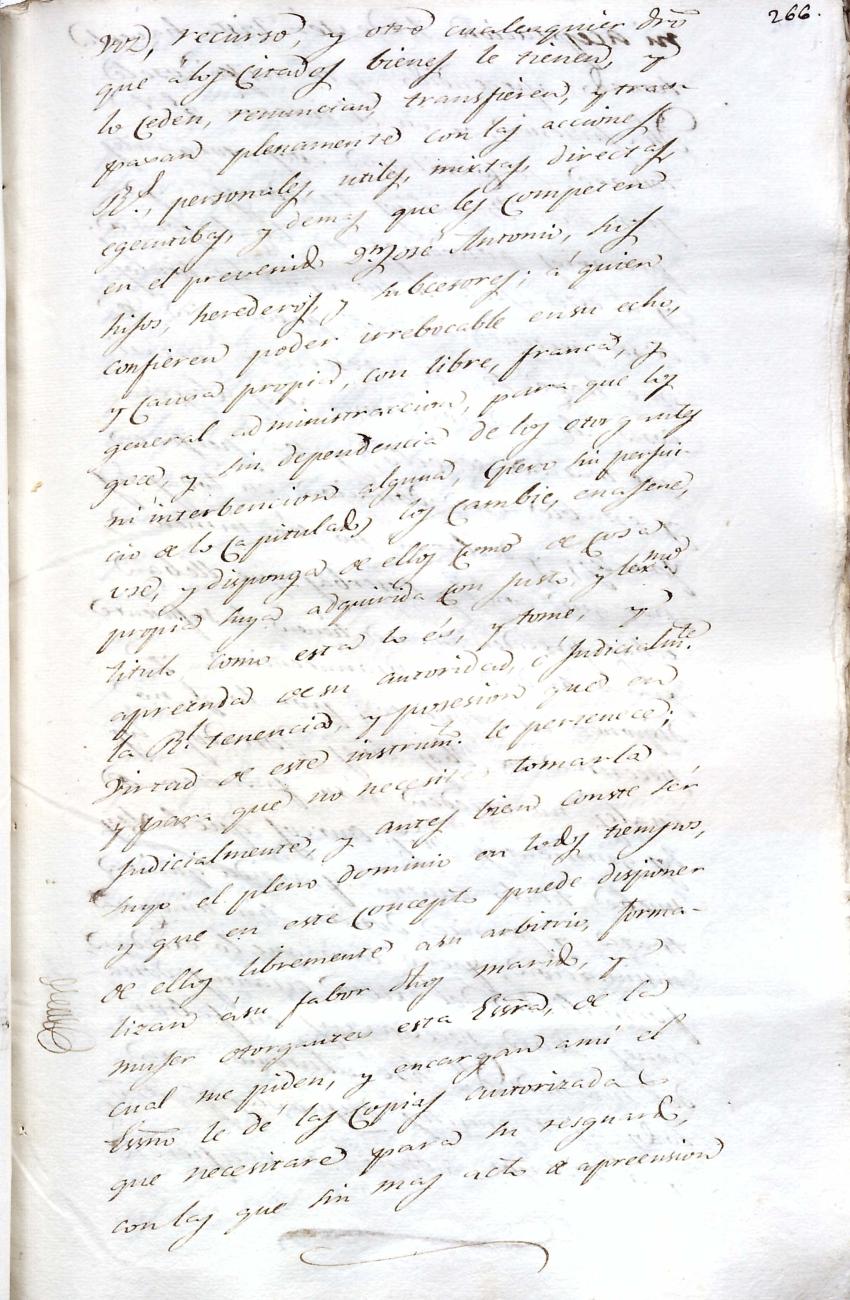 266.
voz, recurso, y otro cualesquier dro
que á los Citados bienes le tienen, y
lo Ceden, renuncian, transfieren, y tras-
pasan plenamente con las acciones
Rs., personales, utiles, mixtas, directas,
egecutibas, y demas que les Competen
en el prevenido Dn. José Antonio, sus
hijos, herederos, y subcesores; á quien
confieren poder irrebocable en su echo,
y Causa propia, con libre, franca, y
general administracion, para que los
goce, y sin dependencia de los otorgantes
ni interbencion alguna, (pero sin perjui-
cio de lo Capitulado) los Cambie, enagene,
use, y disponga de ellos Como de Cosa
propia suya adquirida con justo, y lexmo.
titulo como esta lo és, y tome, y
aprenda de su autoridad, ó Judicialmte.
la Rl. tenencia, y posesion que en
Virtud de este instrumto. le pertenece;
y para que no necesite tomarla
Judicialmente, y antes bien conste sér
suyo el pleno dominio en todos tiempos,
y que en este Concepto puede disponer
de ellos libremente a su arbitrio, forma-
lizan á su fabor dhos marido, y
muger otorgantes esta Essra, de la
cual me piden, y encargan a mi el
Essno le dé las Copias autorizadas
que necesitare para su resguardo,
con las que sin mas acto de apreension